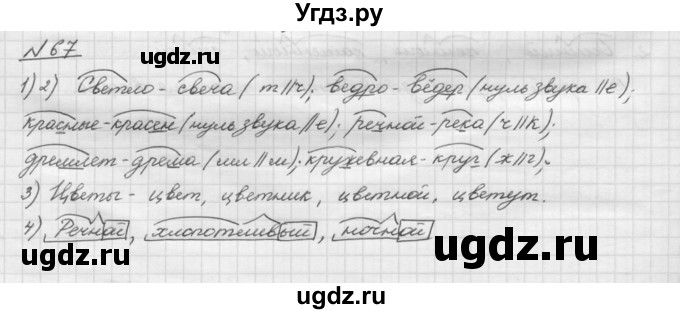 Угдз.ру
N67
1) 2) Светло - свеча (т||ч); ведро - вёдер (нуль звука||е);
красные - красен (нуль звука||е); речной - река (ч||к);
дремлет - дрема (мл||м); кружевная - круг (ж||г);
3) Цветы - цвет, цветник, цветной, цветут.
4) Речной, хлопотливый, ночной
ugdz.ru ugdz.ru
ugdz.ru ugdz.ru
ugdz.ru ugdz.ru
ugdz.ru